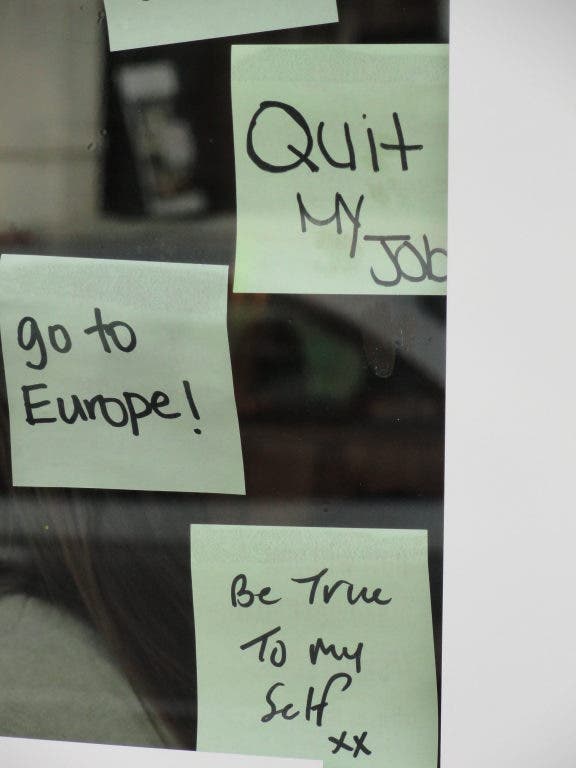 Quit
My
Job
go to
Europe!
Be True
To my
Self
xx